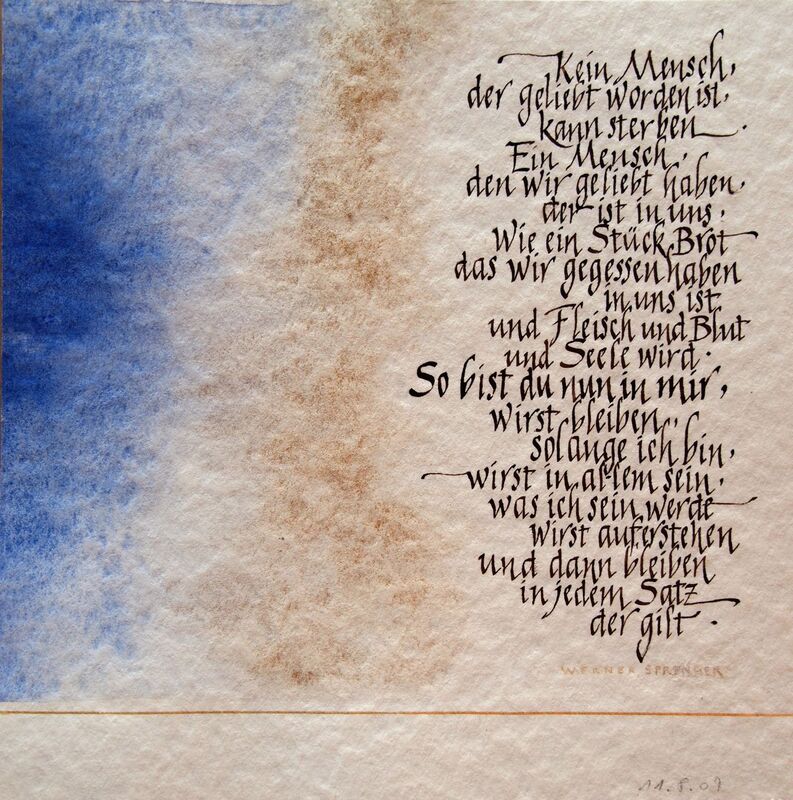 Kein Mensch,
der geliebt worden ist,
kann sterben.
Ein Mensch,
den wir geliebt haben,
der ist in uns,
wie ein Stück Brot
das wir gegessen haben
in uns ist
und Fleisch und Blut
und Seele wird.
So bist du nun in mir,
wirst bleiben,
solange ich bin,
wirst in allem sein,
was ich sein werde
wirst auferstehen
und dann bleiben
in jedem Satz
der gilt.
WERNER SPRENGER